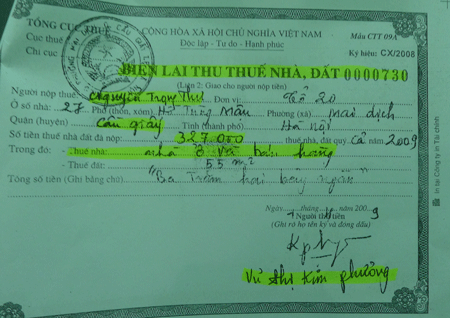 TỔNG CỤC THUẾ CỘNG HÒA XÃ HỘI CHỦ NGHĨA VIỆT NAM Mẫu CTT 09A
Cục thuế Độc lập - Tự do - Hạnh phúc Ký hiệu: CX/2008
Chi cục
BIÊN LAI THU THUẾ NHÀ, ĐẤT 0000730
(Liên 2: Giao cho người nộp tiền)
Người nộp thuế: Nguyễn Trọng Thư Đơn vị: Tổ 20
Ở số nhà: 27 Phố (thôn, xóm) Hồ Tùng Mậu Phường (xã) Mai dịch
Quận (huyện) Cầu giấy Tỉnh (thành phố) Hà Nội
Số tiền thuế nhà đất đã nộp: 327.000 thuế nhà, đất quý cả 2009
Trong đó: - Thuế nhà: nhà ở và bán hàng
- Thuế đất: 55 m2
Tổng số tiền (Ghi bằng chữ) "Ba trăm hai bảy ngàn"
Ngày tháng năm 200 9
Người thu tiền
(Ghi rõ họ tên ký và đóng dấu)
Vũ Thị Kim Phương
In tại Công ty in Tài chính